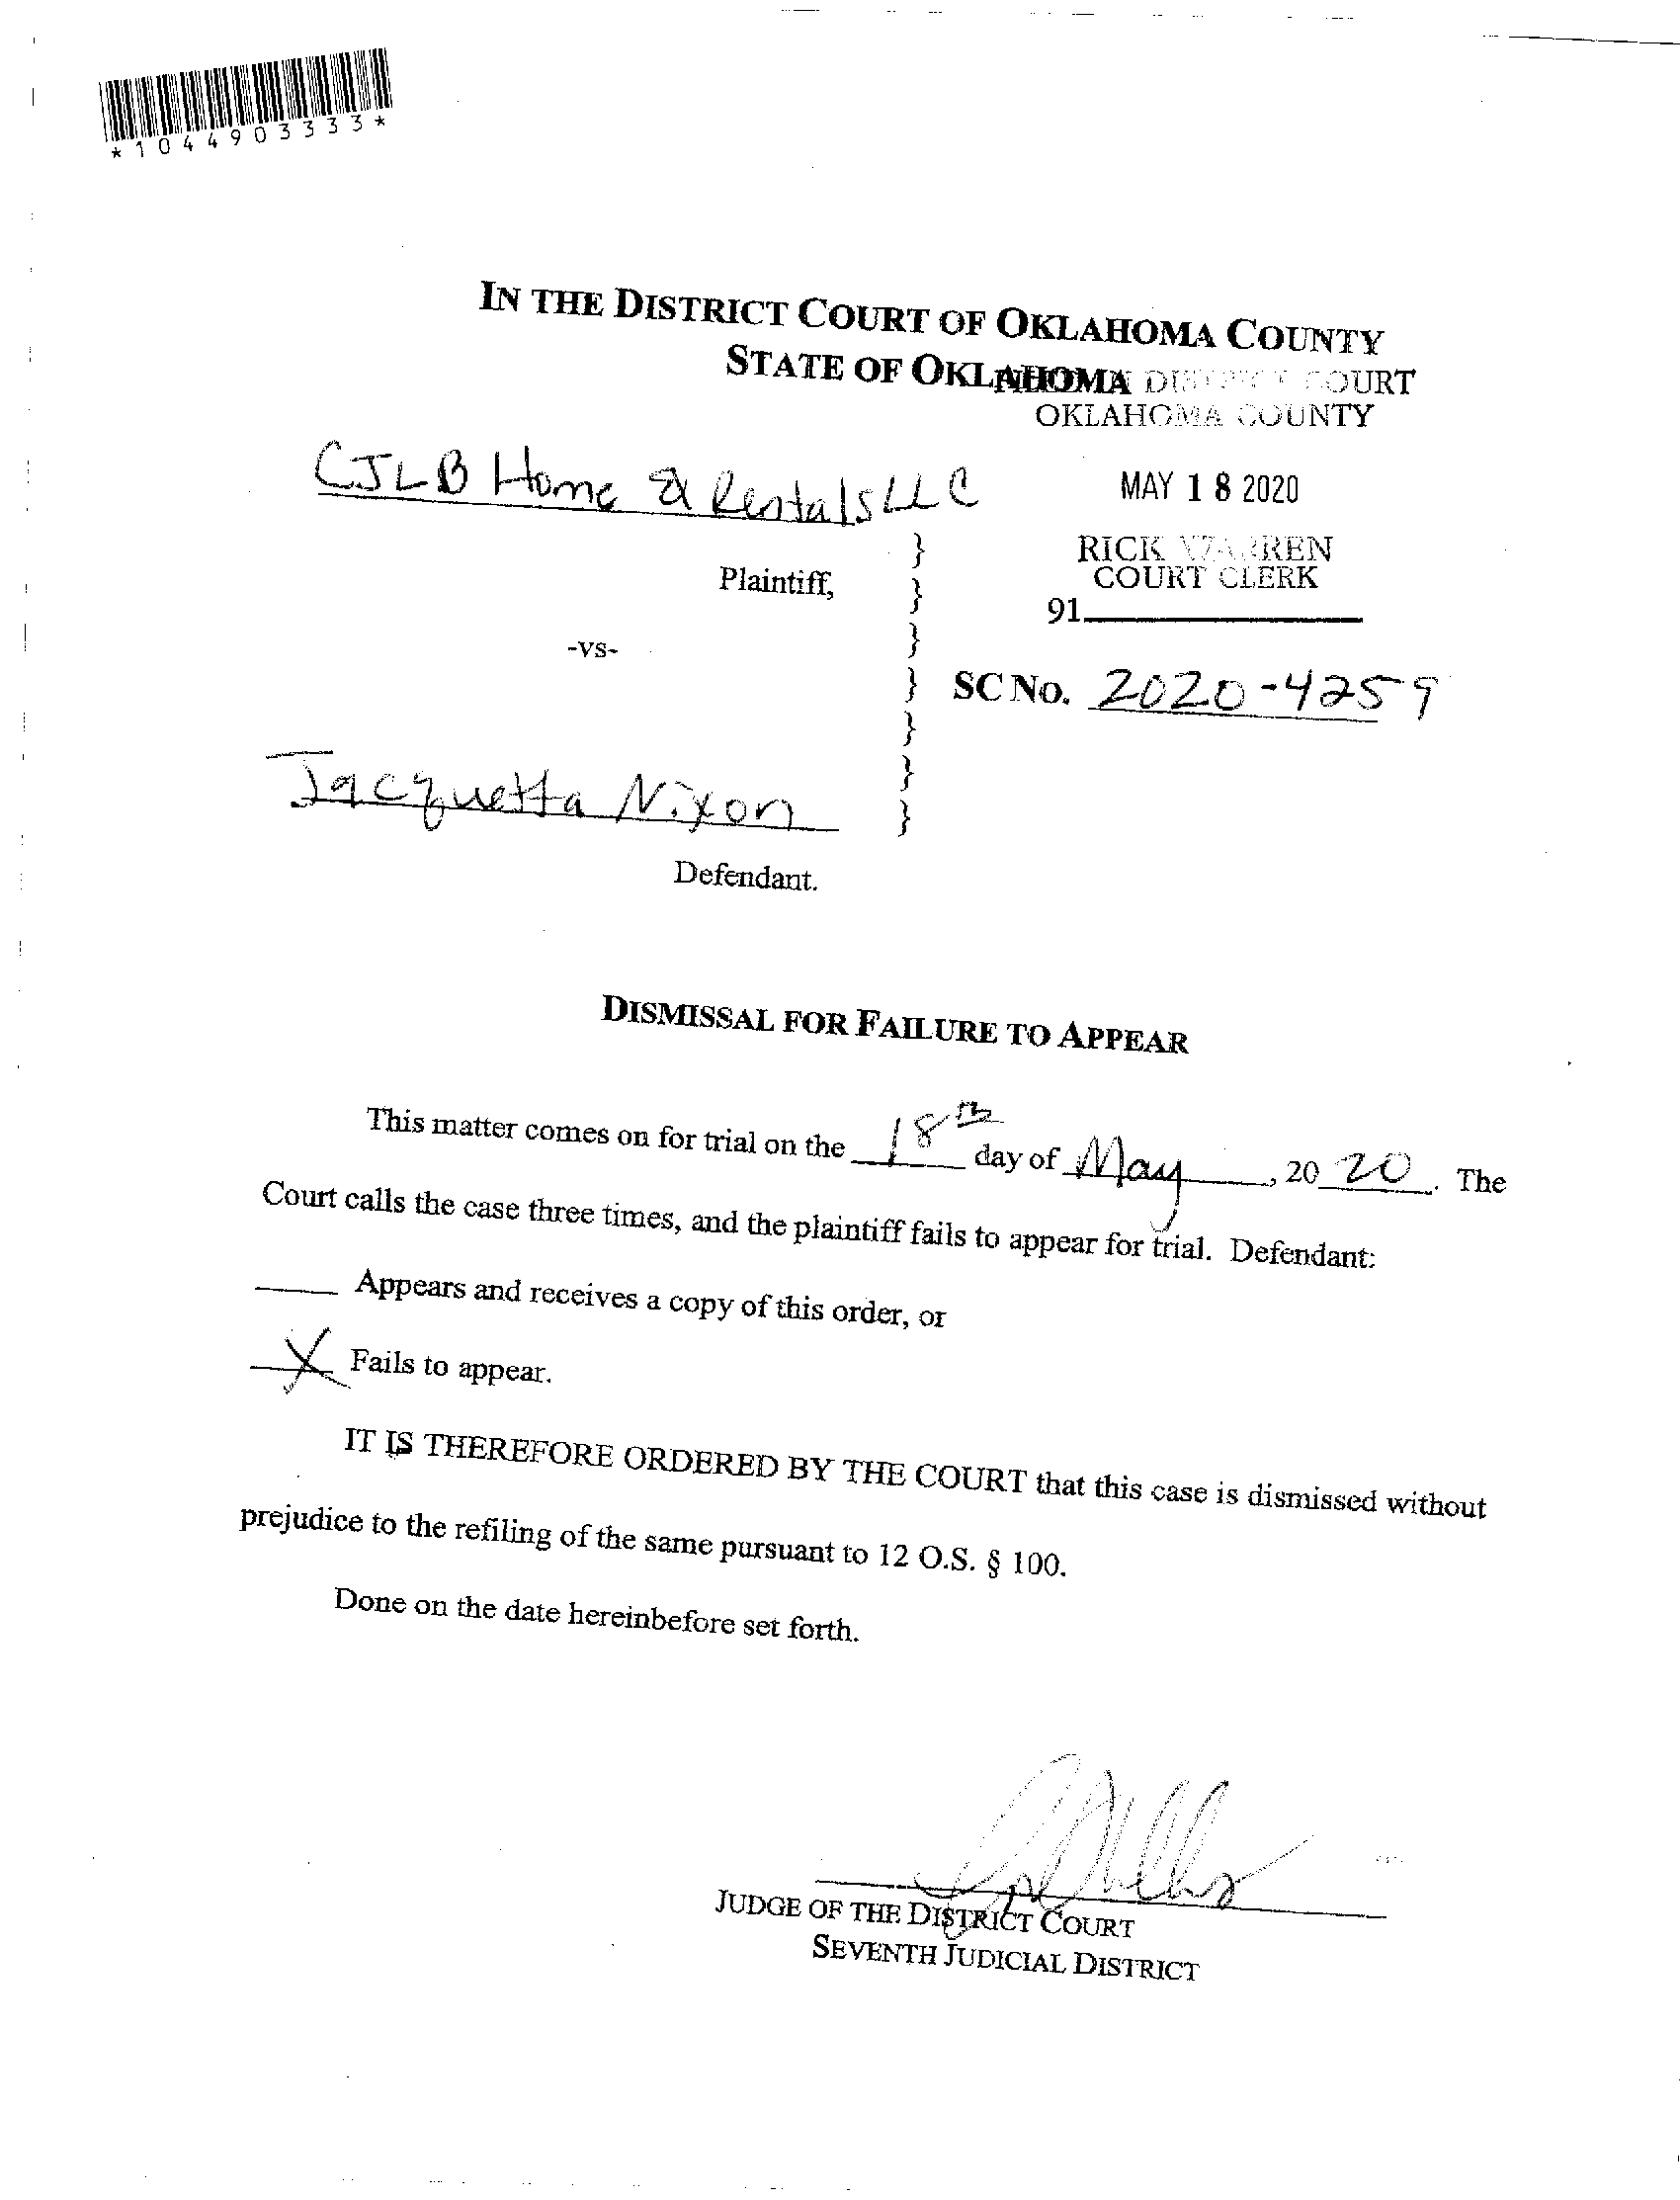 *1044903333*
IN THE DISTRICT COURT OF OKLAHOMA COUNTY
STATE OF OKLAHOMA
DISTRICT COURT
OKLAHOMA COUNTY
CJLB Home & Rentals LLC
MAY 18 2020
RICK WARREN
COURT CLERK
Plaintiff,
91
-vs-
SC NO. 2020-4259
Jacquetta Nixon
Defendant.
DISMISSAL FOR FAILURE TO APPEAR
This matter comes on for trial on the 18th day of May, 2020. The
Court calls the case three times, and the plaintiff fails to appear for trial. Defendant:
Appears and receives a copy of this order, or
X Fails to appear.
IT IS THEREFORE ORDERED BY THE COURT that this case is dismissed without
prejudice to the refiling of the same pursuant to 12 O.S. § 100.
Done on the date hereinbefore set forth.
JUDGE OF THE DISTRICT COURT
SEVENTH JUDICIAL DISTRICT